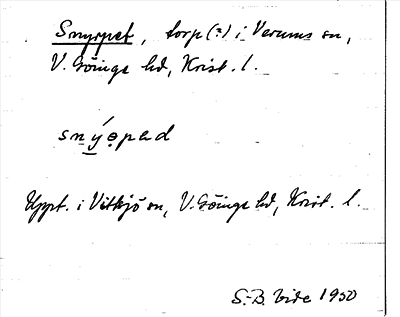 Snyrpet, torp (?) i Verums sn,
V. Göinge hd, Krist. l.
snýǝpad
Uppt. i Vittsjö sn, V. Göinge hd, Krist. l.
S.-B. Vide 1950